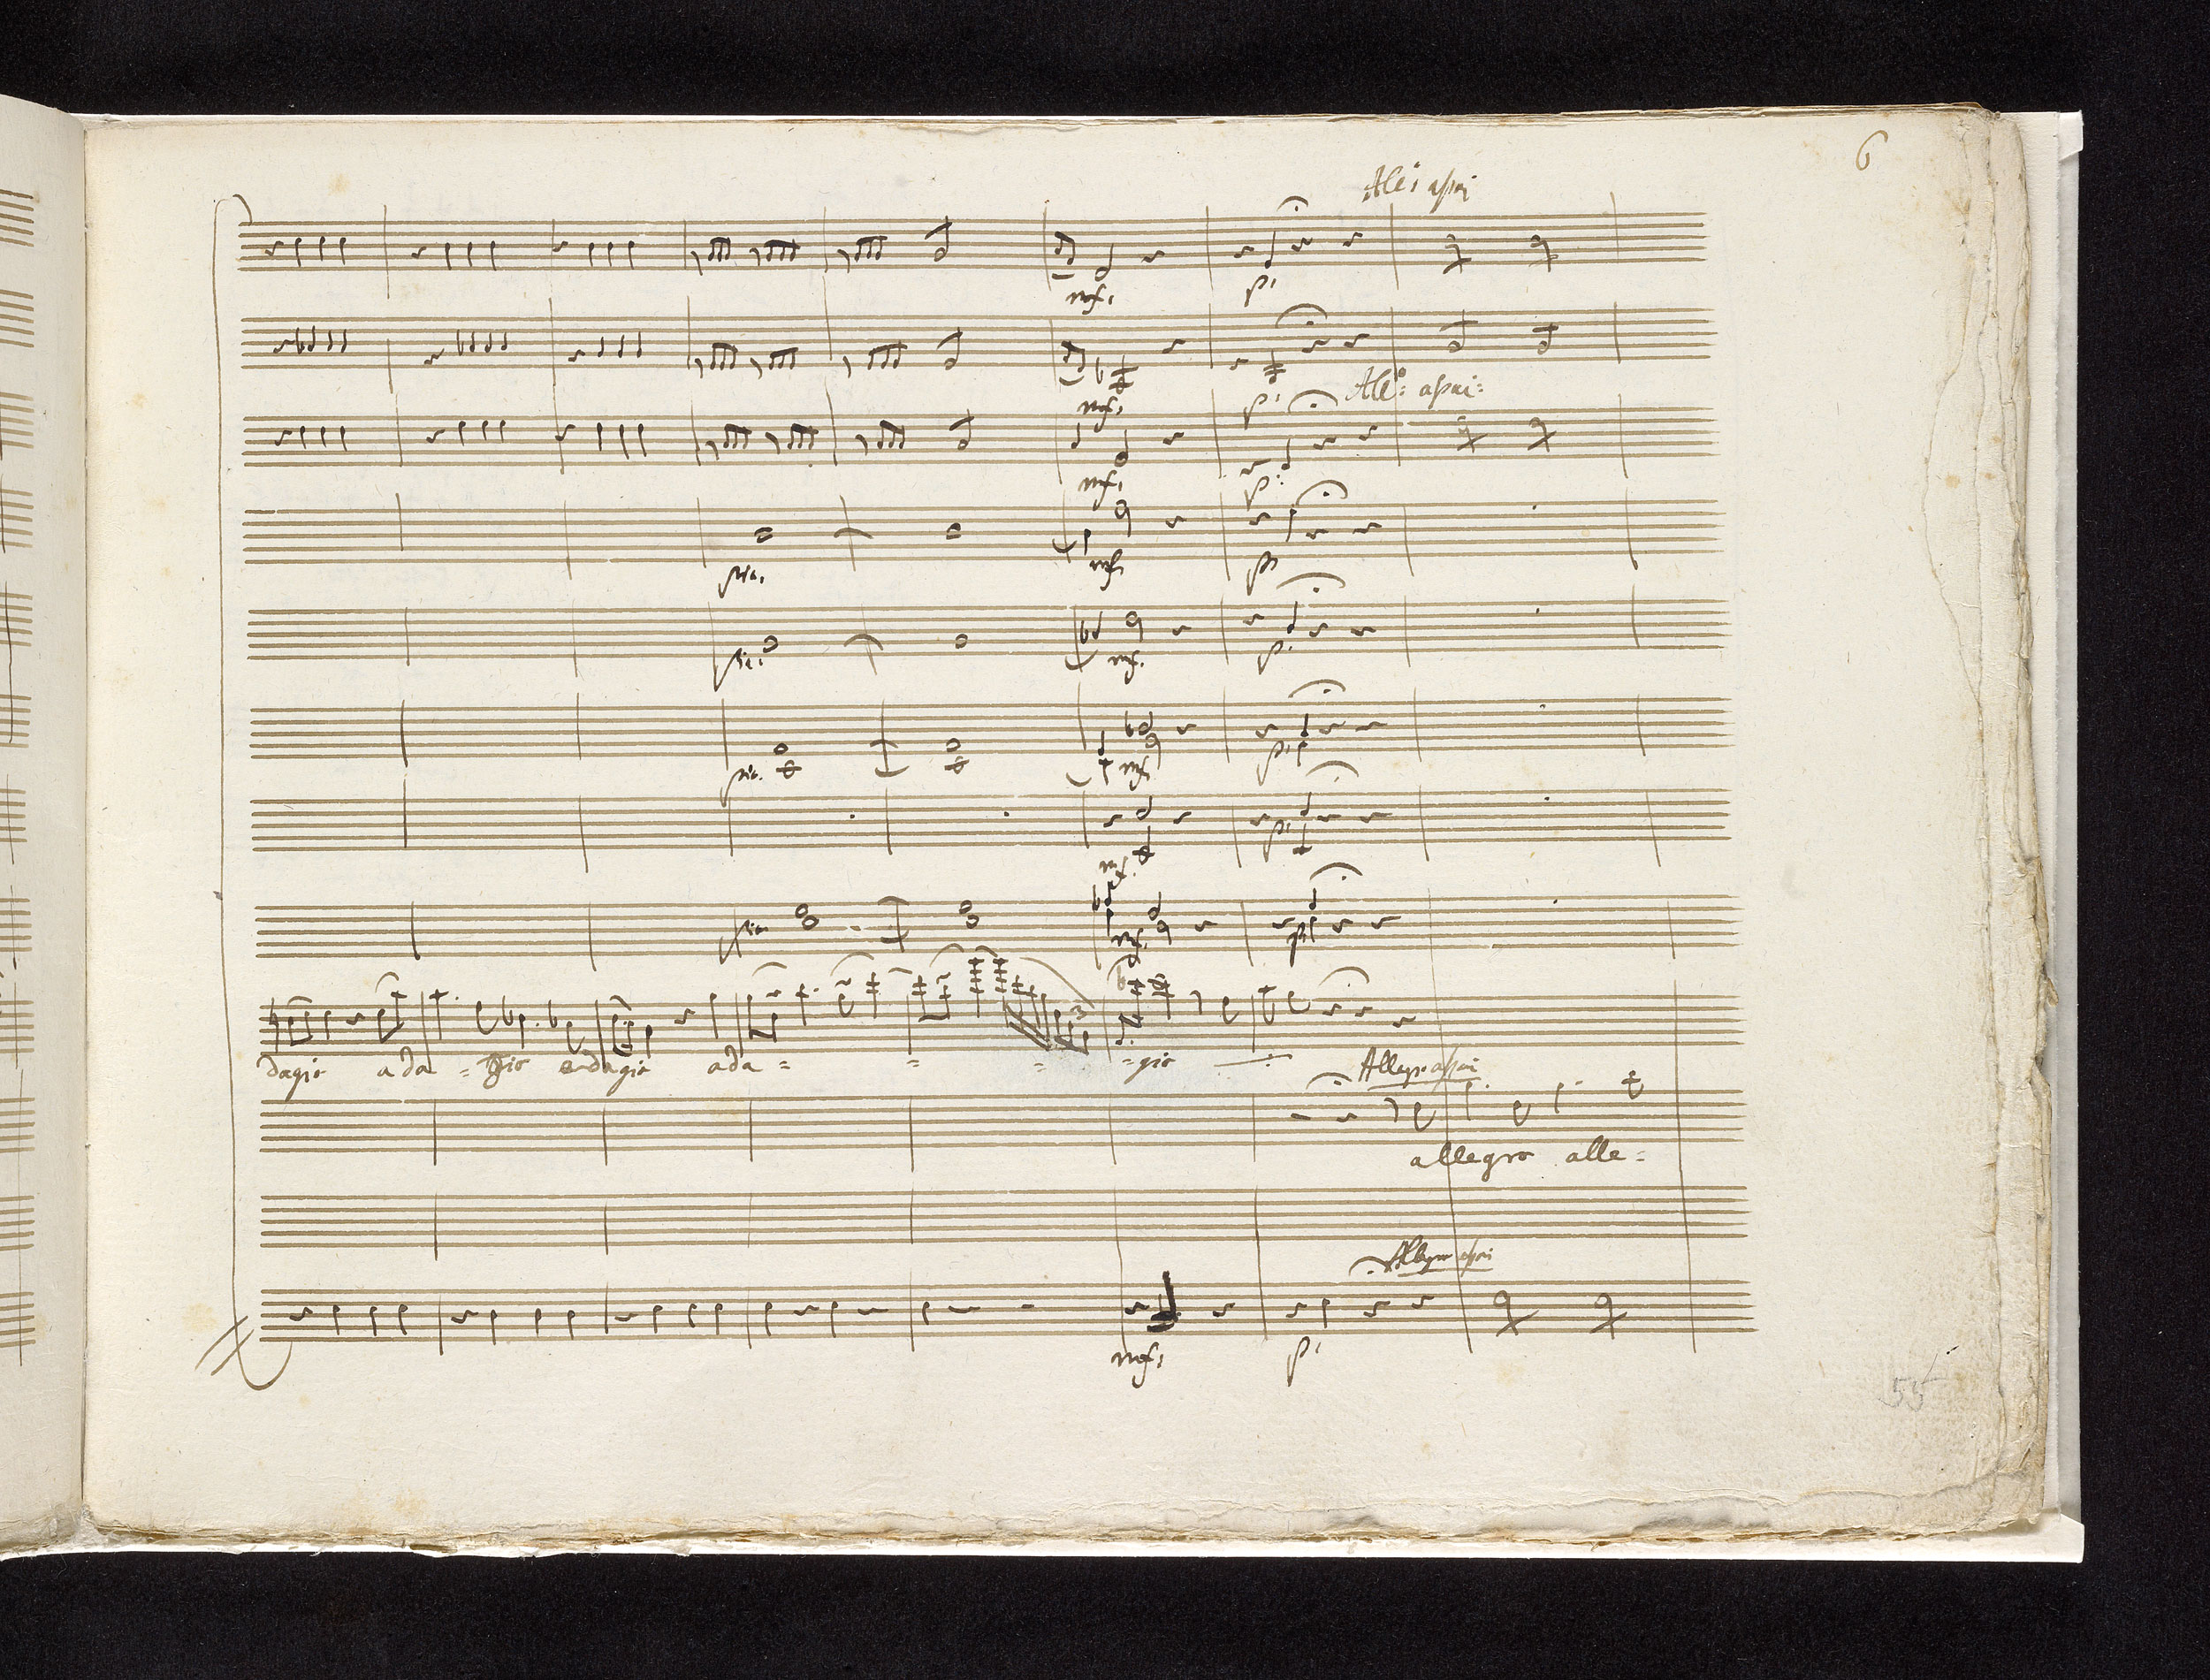 6
All: assai
mf: p:
mf: p: All:º assai:
mf: p:
pia. mf: p:
pia: mf: p:
pia. mf: p:
mf: p:
pia. mf: p:
dagio ada = gio adagio ada = = = = gio
Allegro assai
allegro alle =
Allegro assai
mf: p:
55